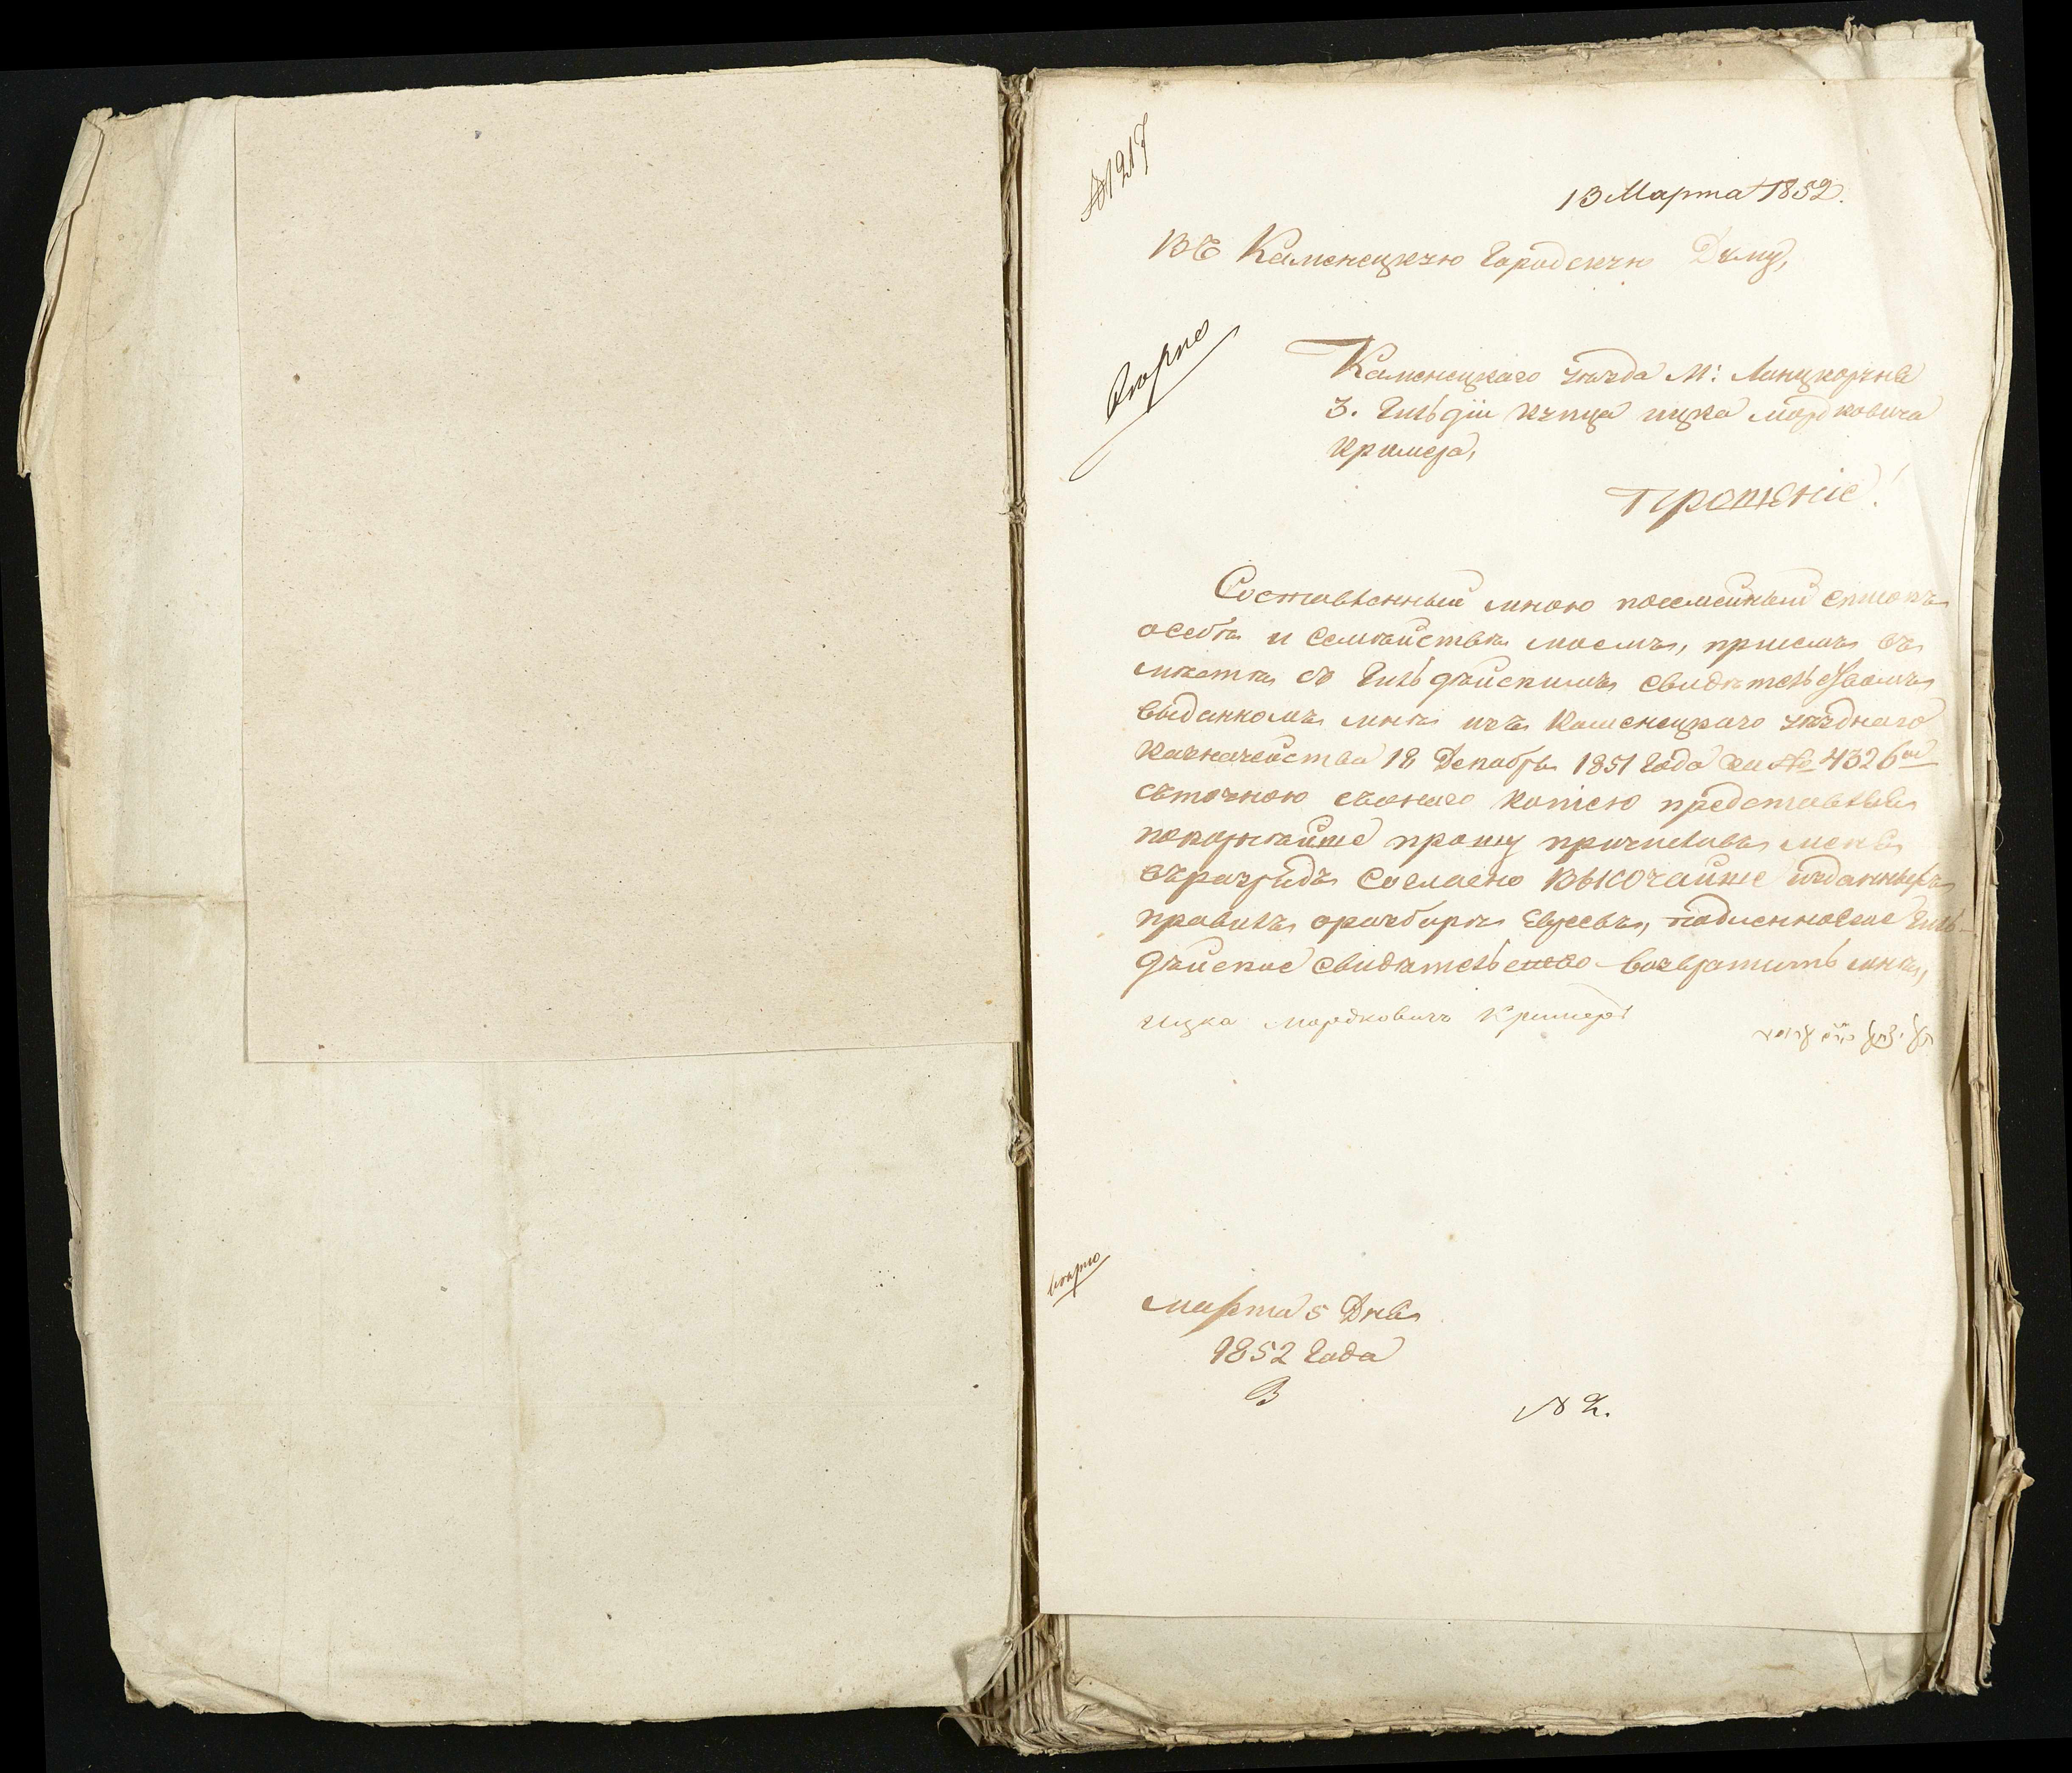 № 1217
13 Марта 1852.
Въ Каменецкую Городскую Думу,
вѣрно
Каменецкаго уѣзда М: Ланцкоруня
3. Гильдіи купца ицка мордковича
кримера,
Прошеніе!
Составленный мною посемейный списокъ
осебѣ и Семѣйствѣ моемъ, присемъ въ
мѣстѣ съ Гильдѣйскимъ свидѣтельствомъ
выданномъ мнѣ изъ Каменецкаго уѣзднаго
Казначейства 18 Декабря 1851 Года за № 4326м
сѣточною съонаго копіею представляя
покорнѣйше прошу причислить меня
въразрядъ Согласно Высочайше изданныхъ
правилъ оразборѣ Евреевъ, подленноеже Гиль-
дѣйское свидѣтельсиво возвратить мнѣ,
ицка мордковичъ Кримеръ
вѣрно
марта 5 Дня
1852 Года
№ 2.